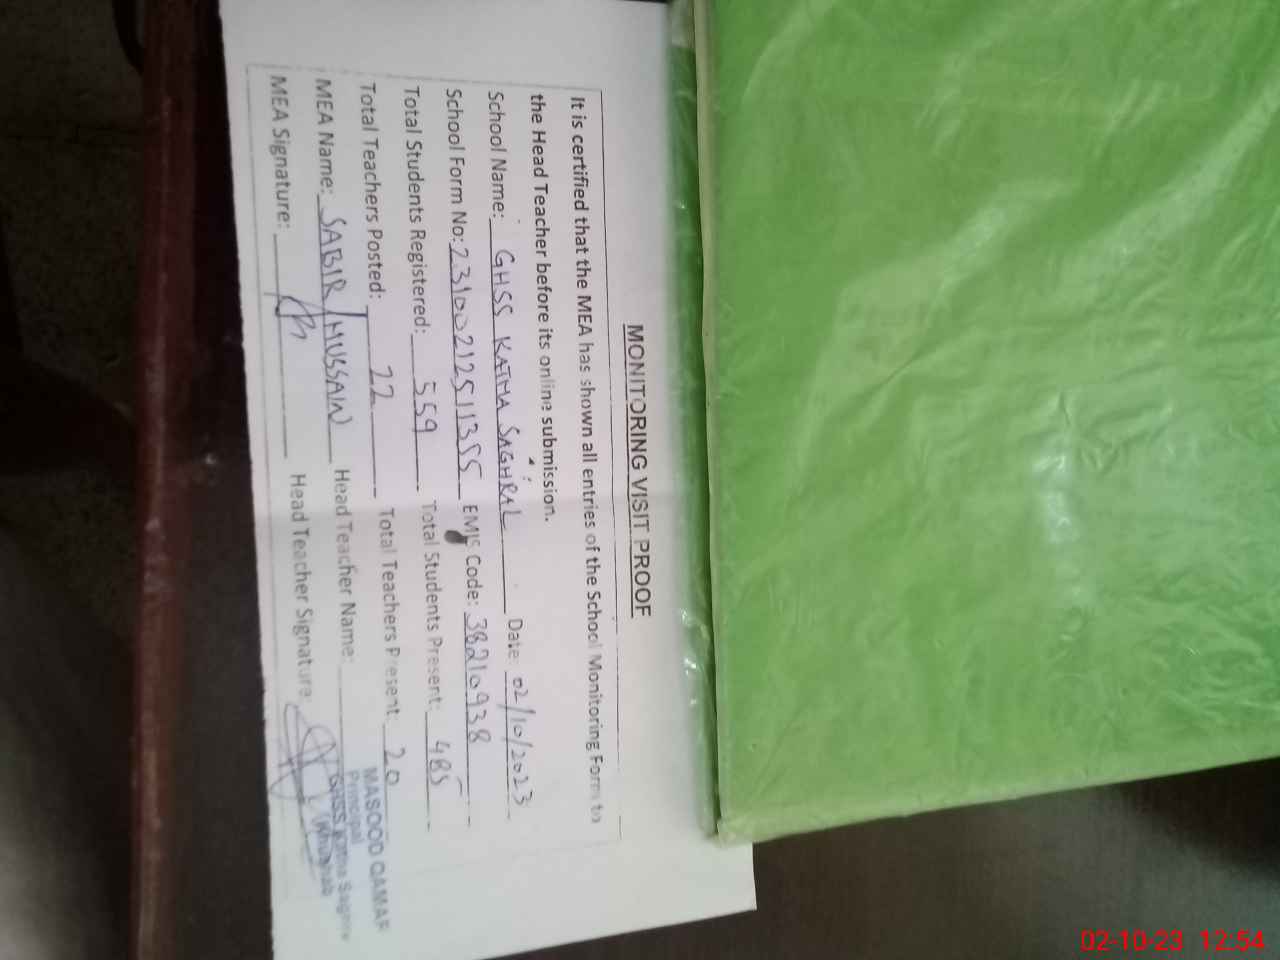 MONITORING VISIT PROOF
It is certified that the MEA has shown all entries of the School Monitoring Form to
the Head Teacher before its online submission.
School Name: GHSS KATHA SAGHRAL Date: 02/10/2023
School Form No: 23100212511355 EMIS Code: 38210938
Total Students Registered: 559 Total Students Present: 485
Total Teachers Posted: 22 Total Teachers Present: 20
MEA Name: SABIR HUSSAIN Head Teacher Name:
MEA Signature: Head Teacher Signature:
MASOOD QAMAR
Principal
GHSS Katha
02-10-23 12:54